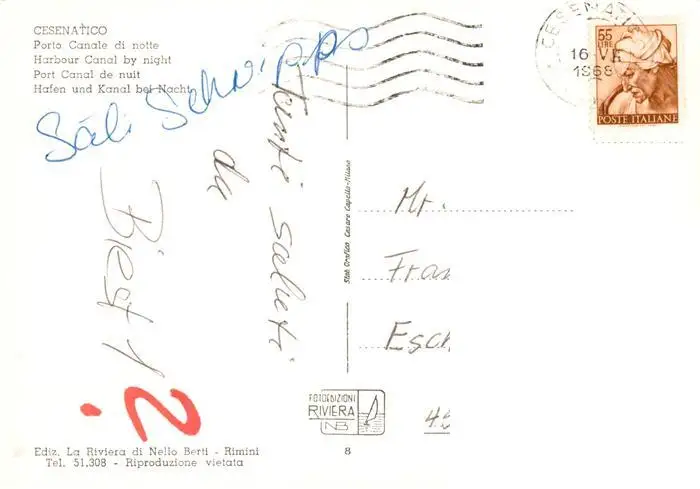 CESENATICO
Porto Canale di notte
Harbour Canal by night
Port Canal de nuit
Hafen und Kanal bei Nacht
Säli Schwipps
Tanti saluti
da
CESENATI
16-VI
1968
55
LIRE
POSTE ITALIANE
Mr.
Fran
Esch
Stab. Grafico Cesare Capello-Milano
FOTOEDIZIONI
RIVIERA
NB
Ediz. La Riviera di Nello Berti - Rimini
Tel. 51,308 - Riproduzione vietata
8
2.